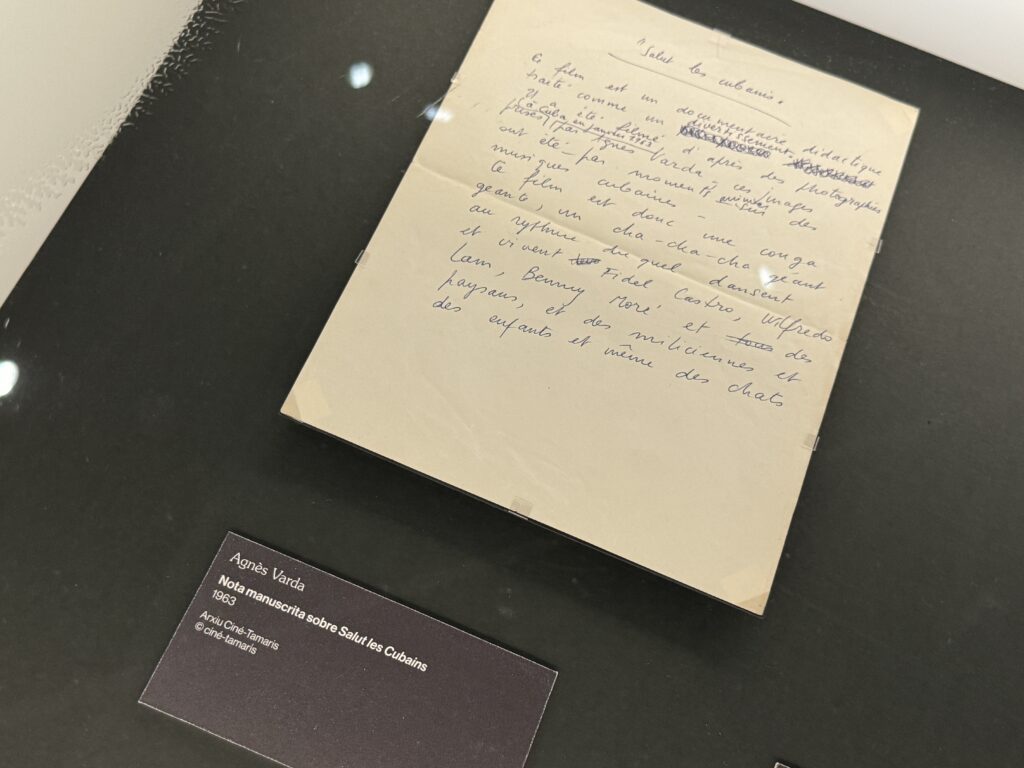 "Salut les cubains"
Ce film est un documentaire didactique
traité comme un divertissement.
Il a été filmé d'après des photographies
(à Cuba en janvier 1963
prises par Agnès Varda, ces images
ont été par moments animées sur des
musiques cubaines –
Ce film est donc une conga
géante, un cha-cha-cha géant
au rythme duquel dansent
et vivent Fidel Castro, Wilfredo
Lam, Benny Moré et tous des
paysans, et des miliciennes et
des enfants et même des chats
Agnès Varda
Nota manuscrita sobre Salut les Cubains
1963
Arxiu Ciné-Tamaris
© ciné-tamaris